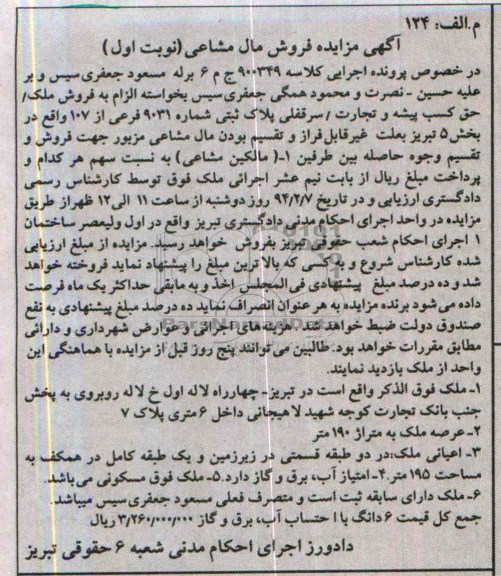 م.الف: ۱۲۴
آگهی مزایده فروش مال مشاعی(نوبت اول)
در خصوص پرونده اجرایی کلاسه ۹۰۰۳۴۹ ج م ۶ برله مسعود جعفری سیس و بر
علیه حسین - نصرت و محمود همگی جعفری سیس بخواسته الزام به فروش ملک/
حق کسب پیشه و تجارت /سرقفلی پلاک ثبتی شماره ۹۰۳۱ فرعی از ۱۰۷ واقع در
بخش۵ تبریز بعلت غیرقابل فراز و تقسیم بودن مال مشاعی مزبور جهت فروش و
تقسیم وجوه حاصله بین طرفین ۱-( مالکین مشاعی) به نسبت سهم هر کدام و
پرداخت مبلغ ریال از بابت نیم عشر اجرائی ملک فوق توسط کارشناس رسمی
دادگستری ارزیابی و در تاریخ ۹۴/۲/۷ روز دوشنبه از ساعت ۱۱ الی۱۲ ظهراز طریق
مزایده در واحد اجرای احکام مدنی دادگستری تبریز واقع در اول ولیعصر ساختمان
۱ اجرای احکام شعب حقوقی تبریز بفروش خواهد رسید. مزایده از مبلغ ارزیابی
شده کارشناس شروع و به کسی که بالاترین مبلغ را پیشنهاد نماید فروخته خواهد
شد و ده درصد مبلغ پیشنهادی فی المجلس اخذ و به مابقی حداکثر یک ماه فرصت
داده می شود برنده مزایده به هر عنوان انصراف نماید ده درصد مبلغ پیشنهادی به نفع
صندوق دولت ضبط خواهد شد. هزینه های اجرائی و عوارض شهرداری و دارائی
مطابق مقررات خواهد بود. طالبین می توانند پنج روز قبل از مزایده با هماهنگی این
واحد از ملک بازدید نمایند.
۱- ملک فوق الذکر واقع است در تبریز- چهارراه لاله اول خ لاله روبروی به پخش
جنب بانک تجارت کوچه شهید لاهیجانی داخل ۶ متری پلاک ۷
۲- عرصه ملک به متراژ ۱۹۰ متر
۳- اعیانی ملک:در دو طبقه قسمتی در زیرزمین و یک طبقه کامل در همکف به
مساحت ۱۹۵ متر.۴- امتیاز آب، برق و گاز دارد.۵- ملک فوق مسکونی می باشد.
۶- ملک دارای سابقه ثبت است و متصرف فعلی مسعود جعفری سیس میباشد.
جمع کل قیمت ۶ دانگ با احتساب آب، برق و گاز ۳/۲۶۰/۰۰۰/۰۰۰ ریال
دادورز اجرای احکام مدنی شعبه ۶ حقوقی تبریز